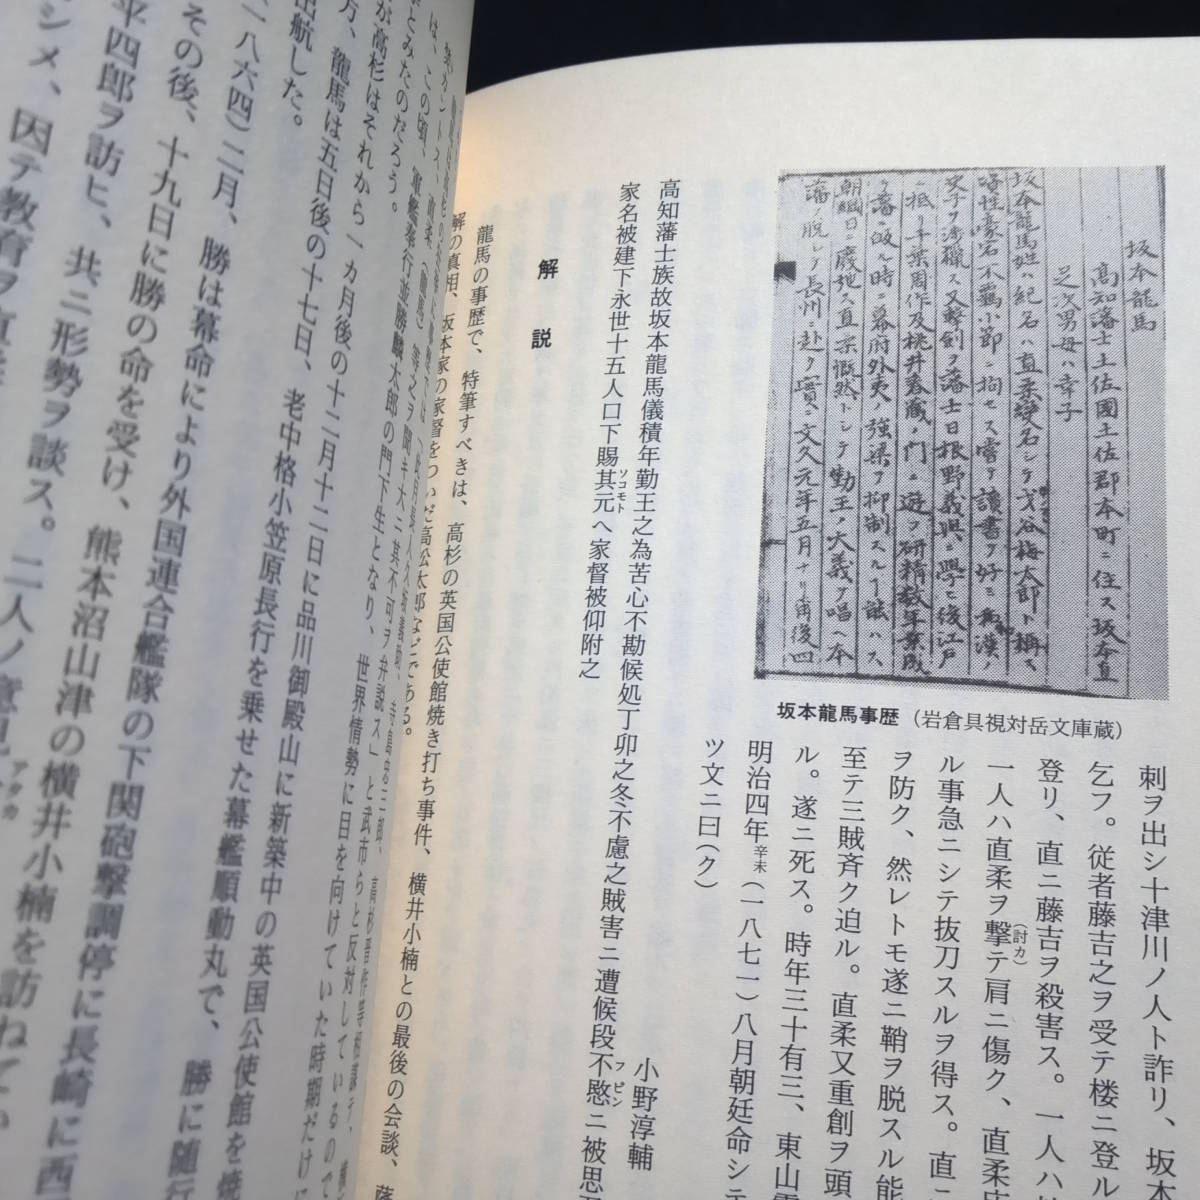 坂本龍馬
高知藩士土佐國土佐郡本町ニ住ス坂本直
之次男母ハ幸子
坂本龍馬姓ハ紀名ハ直柔変名シテ才谷梅太郎ト稱ス
磊性豪宕不羈小節ニ拘セス嘗テ讀書ヲ好ミ和漢ノ
史子ヲ渉獵ス又撃剣ヲ藩士日根野義興ニ學ヒ後江戸
ニ抵リ千葉周作及桃井春蔵ノ門ニ遊ヒ研精数年業成
テ藩ニ皈ル時ニ幕府外夷ノ強梁ヲ抑制スル
朝綱日ニ廃弛ス直柔慨然トシテ勤王ノ大義ヲ唱ヘ本
藩ヲ脱シテ長州ニ赴ク實ニ文久元年五月ナリ爾後四
坂本龍馬事歴（岩倉具視対岳文庫蔵）
刺ヲ出シ十津川ノ人ト詐リ、坂本
乞フ。従者藤吉之ヲ受テ楼ニ登ル
登リ、直ニ藤吉ヲ殺害ス。一人ハ
一人ハ直柔ヲ撃（討カ）テ肩ニ傷ク、直柔
ル事急ニシテ抜刀スルヲ得ス。直ニ
ヲ防ク、然レトモ遂ニ鞘ヲ脱スル能
至テ三賊斉ク迫ル。直柔又重創ヲ頭
ル。遂ニ死ス。時年三十有三、東山霊
明治四年辛未（一八七一）八月朝廷命シテ
ツ文ニ曰（ク）
小野淳輔
高知藩士族故坂本龍馬儀積年勤王之為苦心不勘候処丁卯之冬不慮之賊害ニ遭候段不愍フビンニ被思
家名被建下永世十五人口下賜其元ソコモトヘ家督被仰附之
解説
龍馬の事歴で、特筆すべきは、高杉の英国公使館焼き打ち事件、横井小楠との最後の会談、薩
解の真相、坂本家の家督をついだ高松太郎などである。
は、この頃、直柔（龍馬）等之ヲ聞キ大ニ其不可ヲ弁説ス」と武市らと反対しているので、
軍艦奉行並勝麟太郎の門下生となり、世界情勢に目を向けていた時期だけに
とみたのだろう。
が高杉はそれから一カ月後の十二月十二日に品川御殿山に新築中の英国公使館を焼
万、龍馬は五日後の十七日、老中格小笠原長行を乗せた幕艦順動丸で、勝に随行
出航した。
一八六四）二月、勝は幕命により外国連合艦隊の下関砲撃調停に長崎に西
その後、十九日に勝の命を受け、熊本沼山津の横井小楠を訪ねてい
平四郎ヲ訪ヒ、共ニ形勢ヲ談ス。二人ノ意見
シメ、因テ教育ヲ